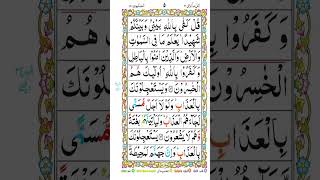 قُلْ كَفٰى بِاللّٰهِ بَيْنِيْ وَبَيْنَكُمْ
شَهِيْدًا يَعْلَمُ مَا فِي السَّمٰوٰتِ
وَالْاَرْضِ وَالَّذِيْنَ اٰمَنُوْا بِالْبَاطِلِ
وَكَفَرُوْا بِاللّٰهِ اُولٰٓئِكَ هُمُ
الْخٰسِرُوْنَ وَيَسْتَعْجِلُوْنَكَ
بِالْعَذَابِ وَلَوْلَا اَجَلٌ مُّسَمًّى
لَّجَآءَهُمُ الْعَذَابُ وَلَيَاْتِيَنَّهُمْ بَغْتَةً
وَّهُمْ لَا يَشْعُرُوْنَ يَسْتَعْجِلُوْنَكَ
بِالْعَذَابِ وَاِنَّ جَهَنَّمَ لَمُحِيْطَةٌ